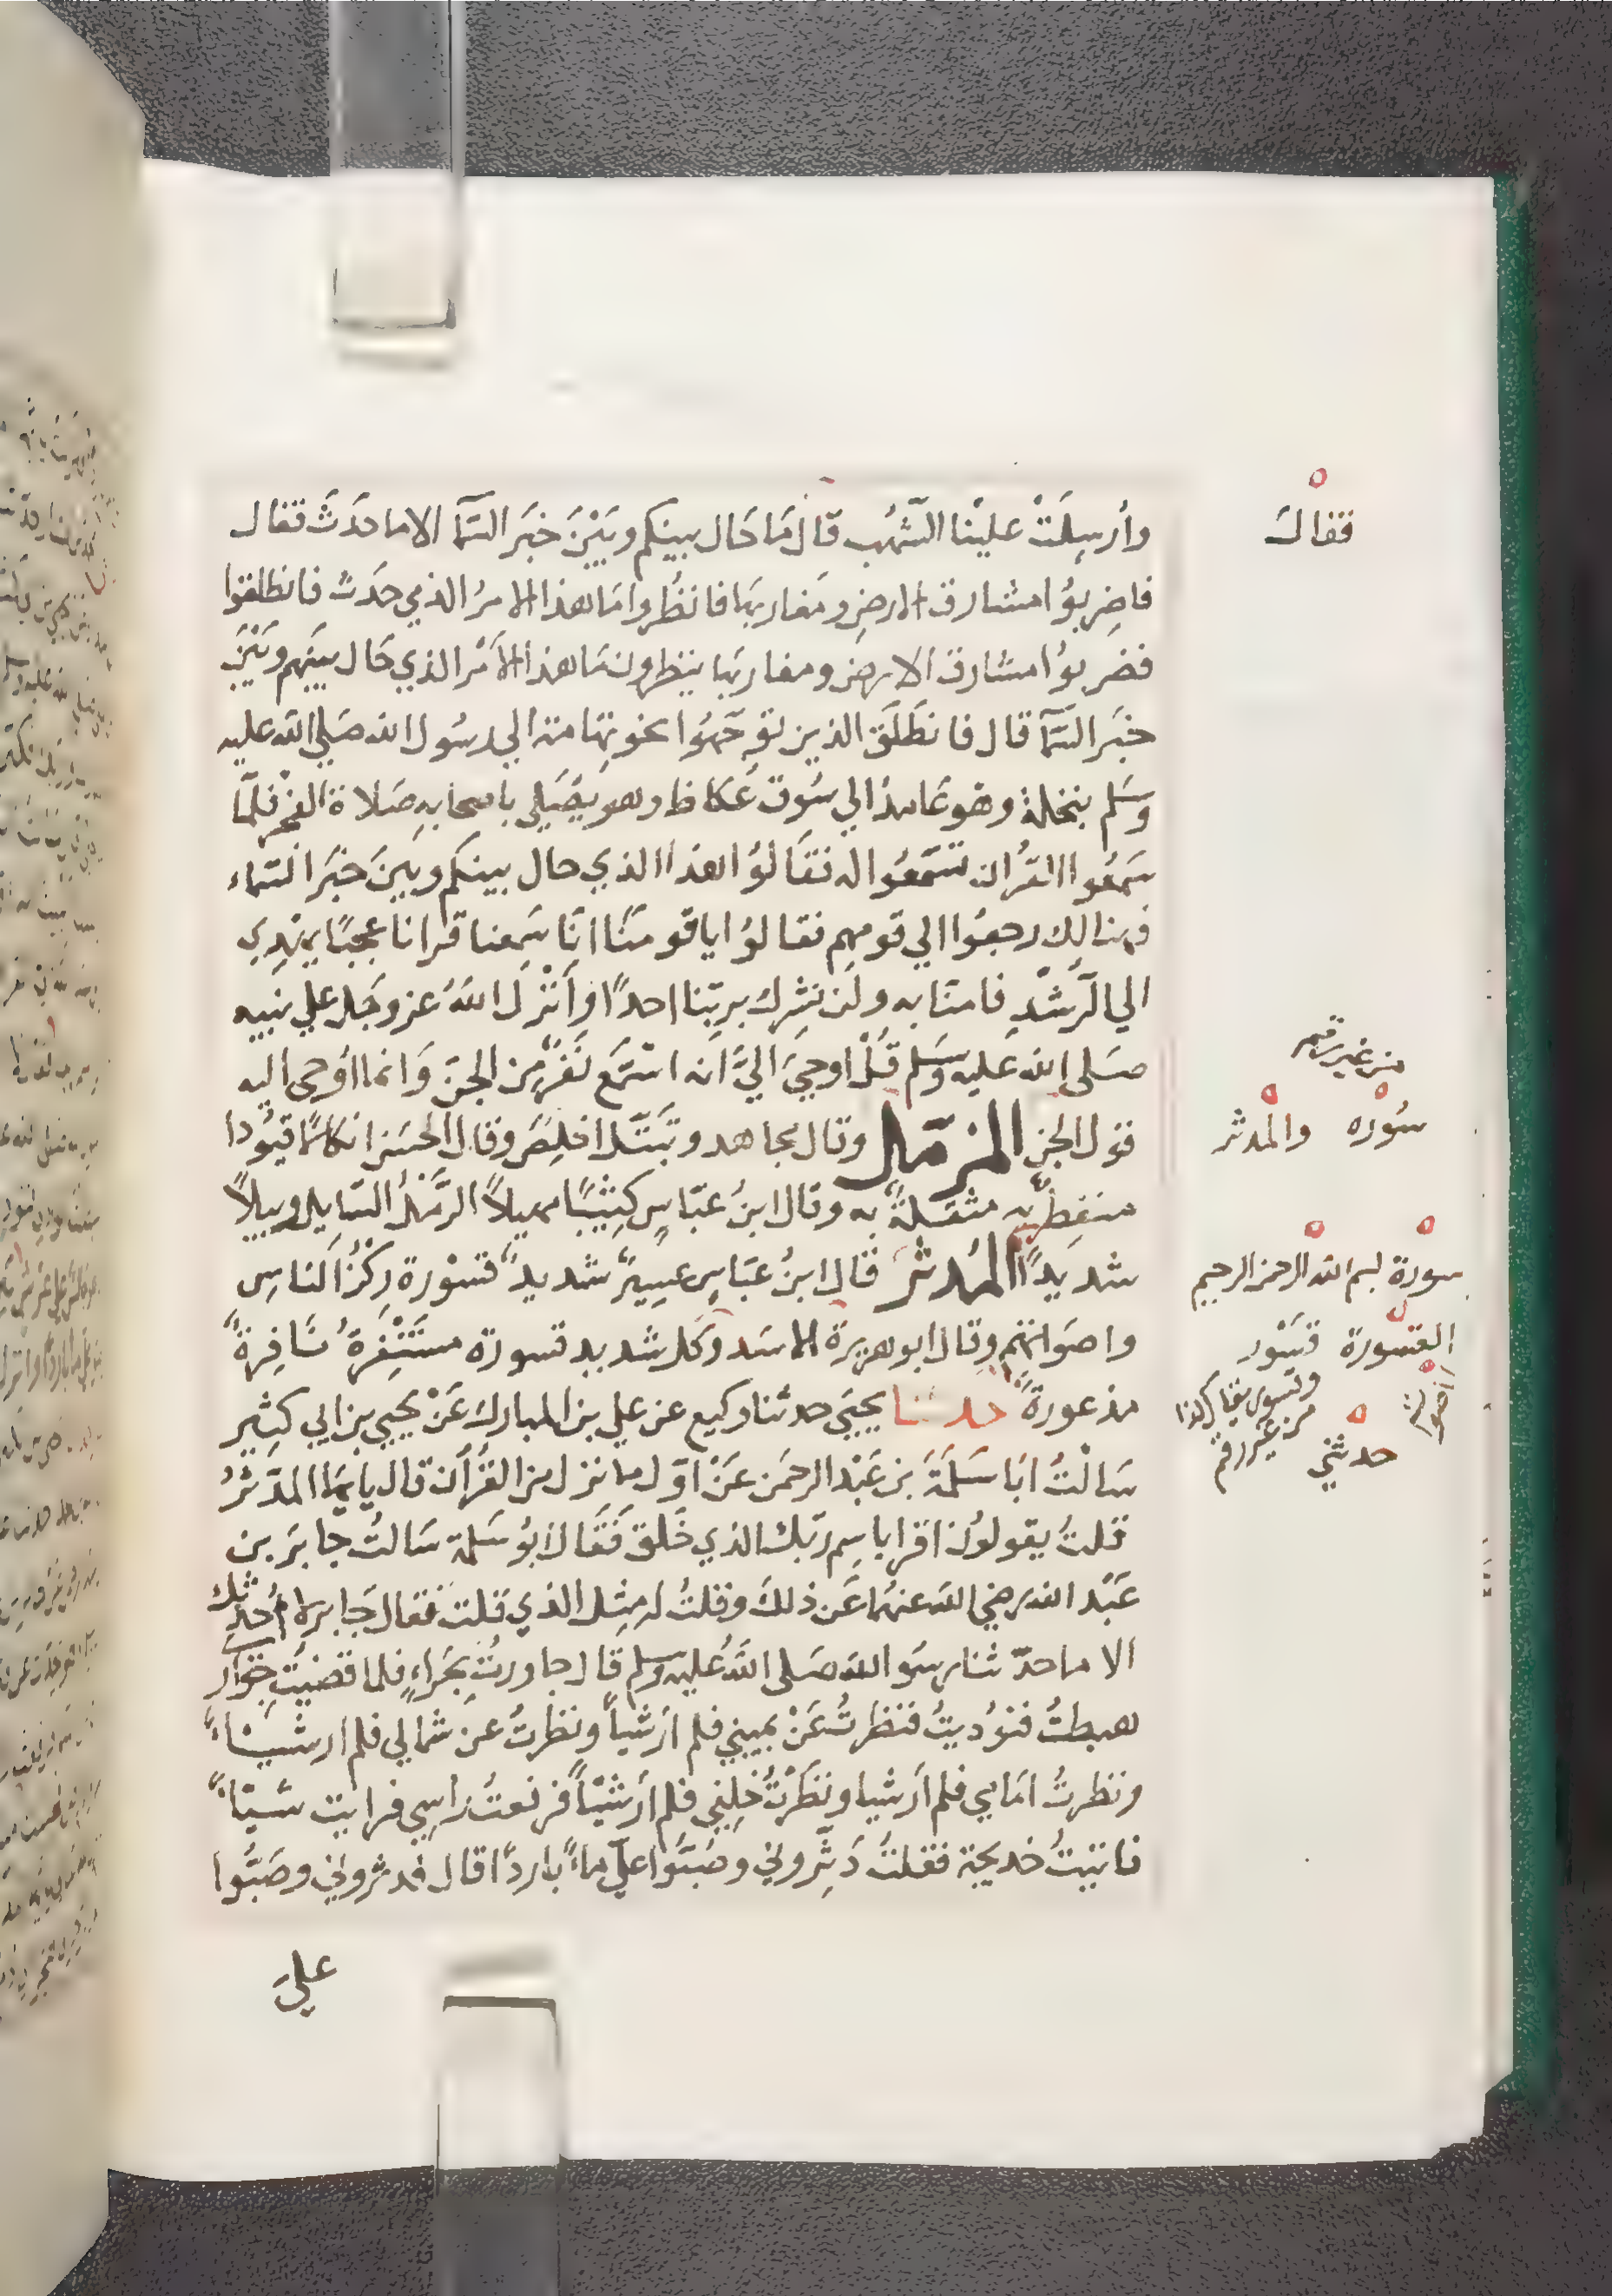 وأُرسِلَتْ علينا الشُّهُب قال مَا حَال بينكم وبَيْنَ خبَرَ السَّمآ الا ما حَدَثَ فقال
فاضرِبوُا مشارق الارضِ ومَغاربَها فانظُروا مَا هذا الامرُ الذي حَدَثَ فانطلقوا
فضربوُا مشارق الارض ومغاربها ينظرون مَا هذا الأَمْر الذي حَال بينَهم وبَيْنَ
خبَر السَّمآ قال فانطَلَقَ الذين توجَّهُوا نحو تهامة الي رسُول الله صَلي الله عليه
وسَلم بنخلة وهو عَامدٌ الي سُوق عكاظ وهو يصَلِي باصحابهِ صَلاة الفجر فلمّا
سَمعُوا القرُان تسَمَّعُوا له فقَالوُا هذا الذي حال بينكم وبينَ خبَر السَّماء
فهنالِك رجعُوا الي قومهم فقالوُا يا قومنَا انّا سَمِعنا قرانا عجبًا يهْدِي
الي الرُّشْدِ فامنّا به ولن نشِرك برِبّنا احدًا وأَنْزل اللهُ عز وجَل علي نبيه
صَلي الله عَليه وسَلم قُلْ اوحِيَ اليَّ انه استَمَع نَفَرٌ من الجنّ وَانما اُوحى اليه
قول الجن المُزّمّل وقال مجاهد وتَبَتَّل اخلِصَ وقال الحَسَن انكالًا قيوُدا
منفِطرٌ به مثقلةٌ به وقال ابنُ عبّاسٍ كثِيبًا مهيلاً الرَّمْلُ السَّايِل وبيلاً
شديدًا المُدثر قال ابنُ عبّاسٍ عسِيرٌ شديدٌ قسْورة رِكْزُ الناسِ
واصوَاتهُم وقال ابو هريرة الاسَد وكل شديد قسورة مستَنْفِرَةٌ نَافِرةٌ
مذعورةٌ حدثنا يحيَي حدثنا وكيع عن علي بن المبارك عَنْ يحيي بن ابي كثِير
سَالتُ ابَا سَلَمَةَ بن عَبْد الرحمَن عَنْ اوّل ما نزل من القُرآن قال يا يهَا المدَّثرُ
قلتُ يقولوُن اقرا باسِم ربّك الذي خَلق فَقَال ابوُ سَلمة سَالتُ جابَر بن
عَبْد الله رضي الله عنهمُا عَن ذلكَ وقلتُ له مِثل الذي قلت فقال جَابر لا اُحدّثك
الا ما حدّثنا رسَول الله صَلى اللهُ عليه وسلم قال جاورتُ بحَراءٍ فلما قضيتُ جواري
هبطتُ فنوُديتُ فنظرتُ عَنْ يميني فلم ارَ شيأً ونظرتُ عن شمالي فلم ار شيئاً
ونظرتُ امَامي فلم ارَ شيا ونظَرْتُ خلفِي فلم ارَ شيْئاً فرفعتُ راسي فرايت شيئاً
فاتيتُ خديجة فقلتُ دَثِّروني وصُبّوا عليّ ماءً باردًا قال فدثروني وصَبُّوا
عليَّ
فقال
من غير رقم
سُوره والمدثر
سورة بسم الله الرحمن الرحيم
القسْورة قسْور
حدثني
من غير رقم